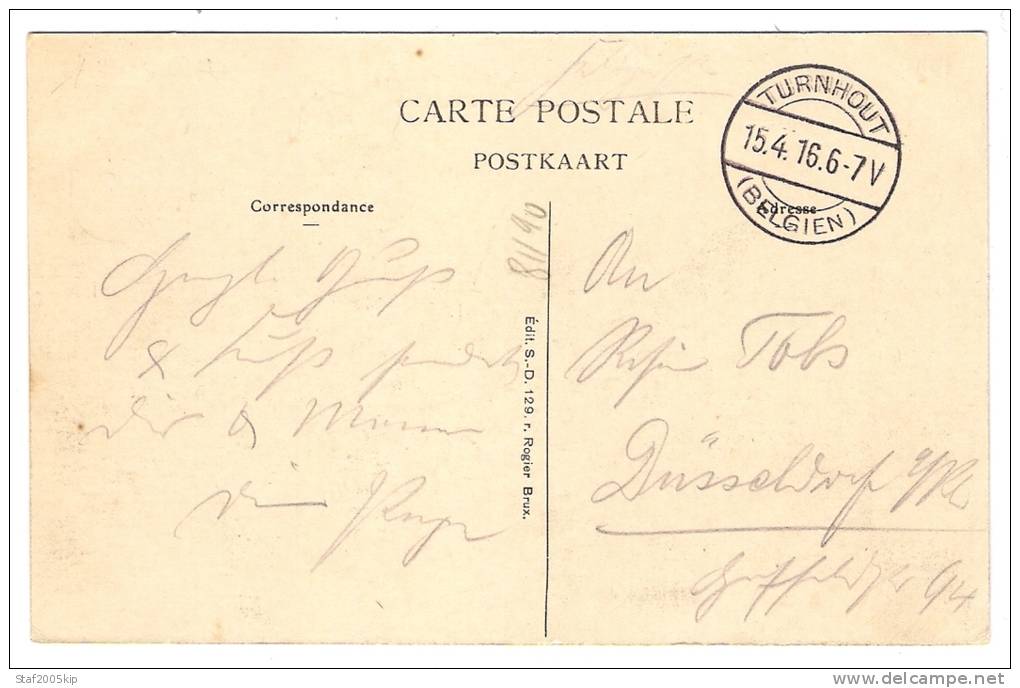 CARTE POSTALE
POSTKAART
TURNHOUT
15.4.16.6-7V
(BELGIEN)
Correspondance
Adresse
81/90
Gruß
& Kuß sendet
Dir & Mama
Dein
Édit. S.-D. 129. r. Rogier Brux.
An
Tobs
Düsseldorf a/Rh
94
Staf2005kip
www.delcampe.net